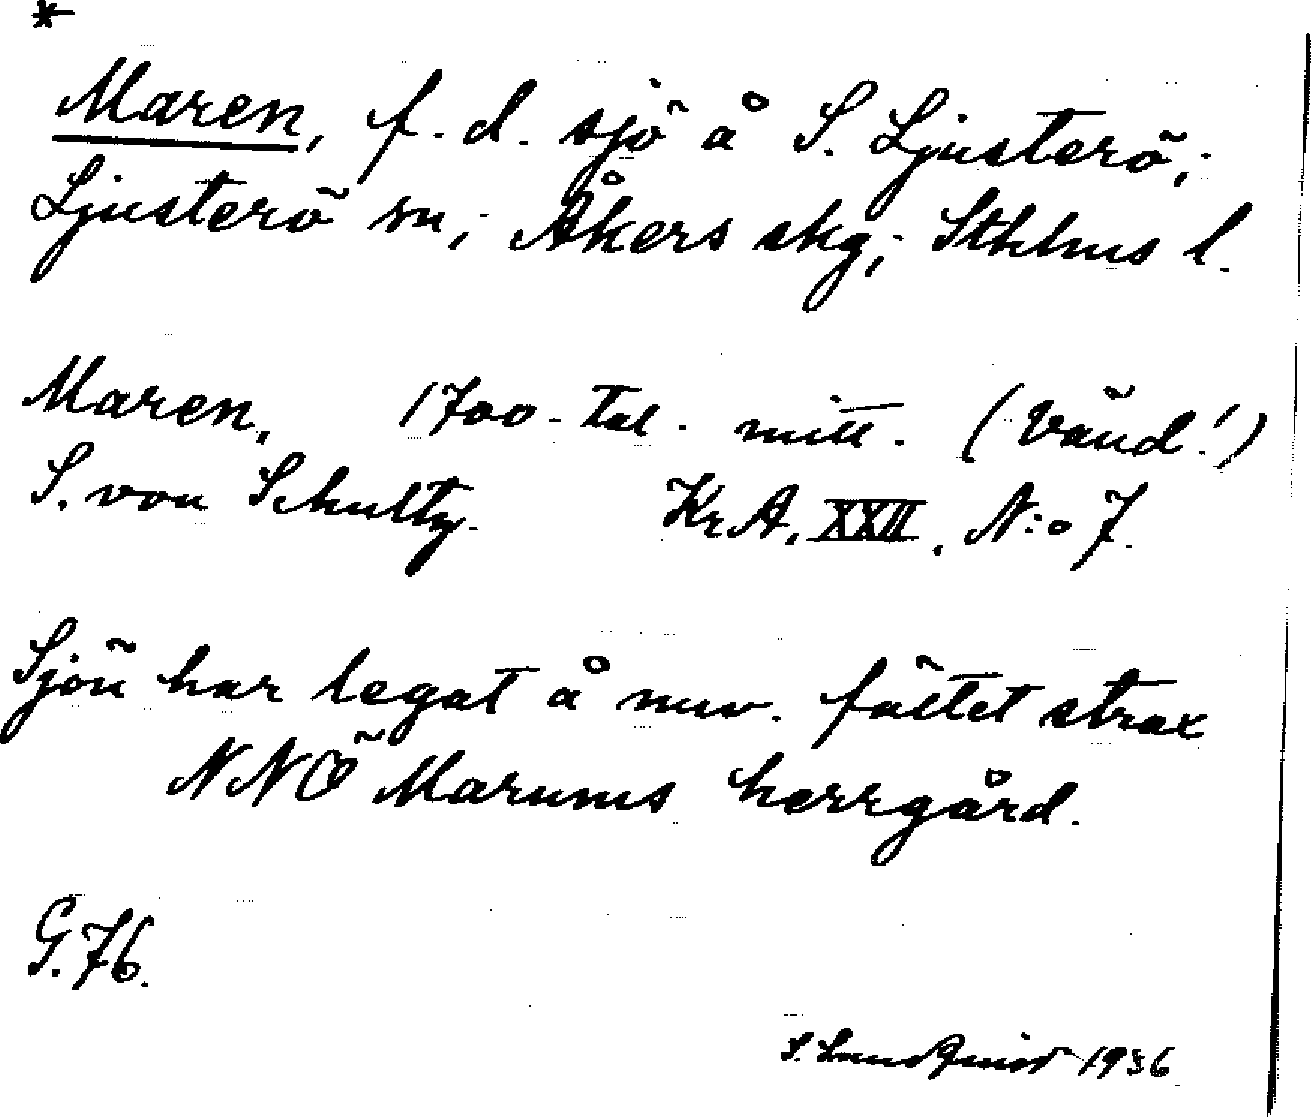 *
Maren, f.d. sjö å S. Ljusterö;
Ljusterö sn; Åkers skg; Sthlms l.
Maren, 1700-tal. mitt. (Vänd!)
S. von Schultz. KrA, XXII, N:o 7.
Sjön har legat å nuv. fältet strax
NNÖ Marums herrgård.
G.76.
S. Lundqvist 1936